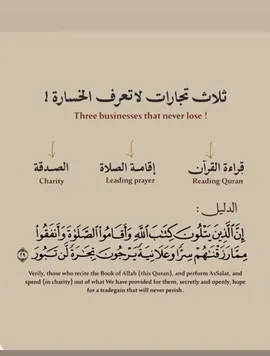 ثلاث تجارات لا تعرف الخسارة !
Three businesses that never lose !
قراءة القرآن إقامة الصلاة الصدقة
Reading Quran Leading prayer Charity
الدليل :
إِنَّ ٱلَّذِينَ يَتْلُونَ كِتَٰبَ ٱللَّهِ وَأَقَامُوا۟ ٱلصَّلَوٰةَ وَأَنفَقُوا۟
مِمَّا رَزَقْنَٰهُمْ سِرًّا وَعَلَانِيَةً يَرْجُونَ تِجَٰرَةً لَّن تَبُورَ ٢٩
Verily, those who recite the Book of Allah (this Quran), and perform AsSalat, and
spend (in charity) out of what We have provided for them, secretly and openly, hope
for a tradegain that will never perish.